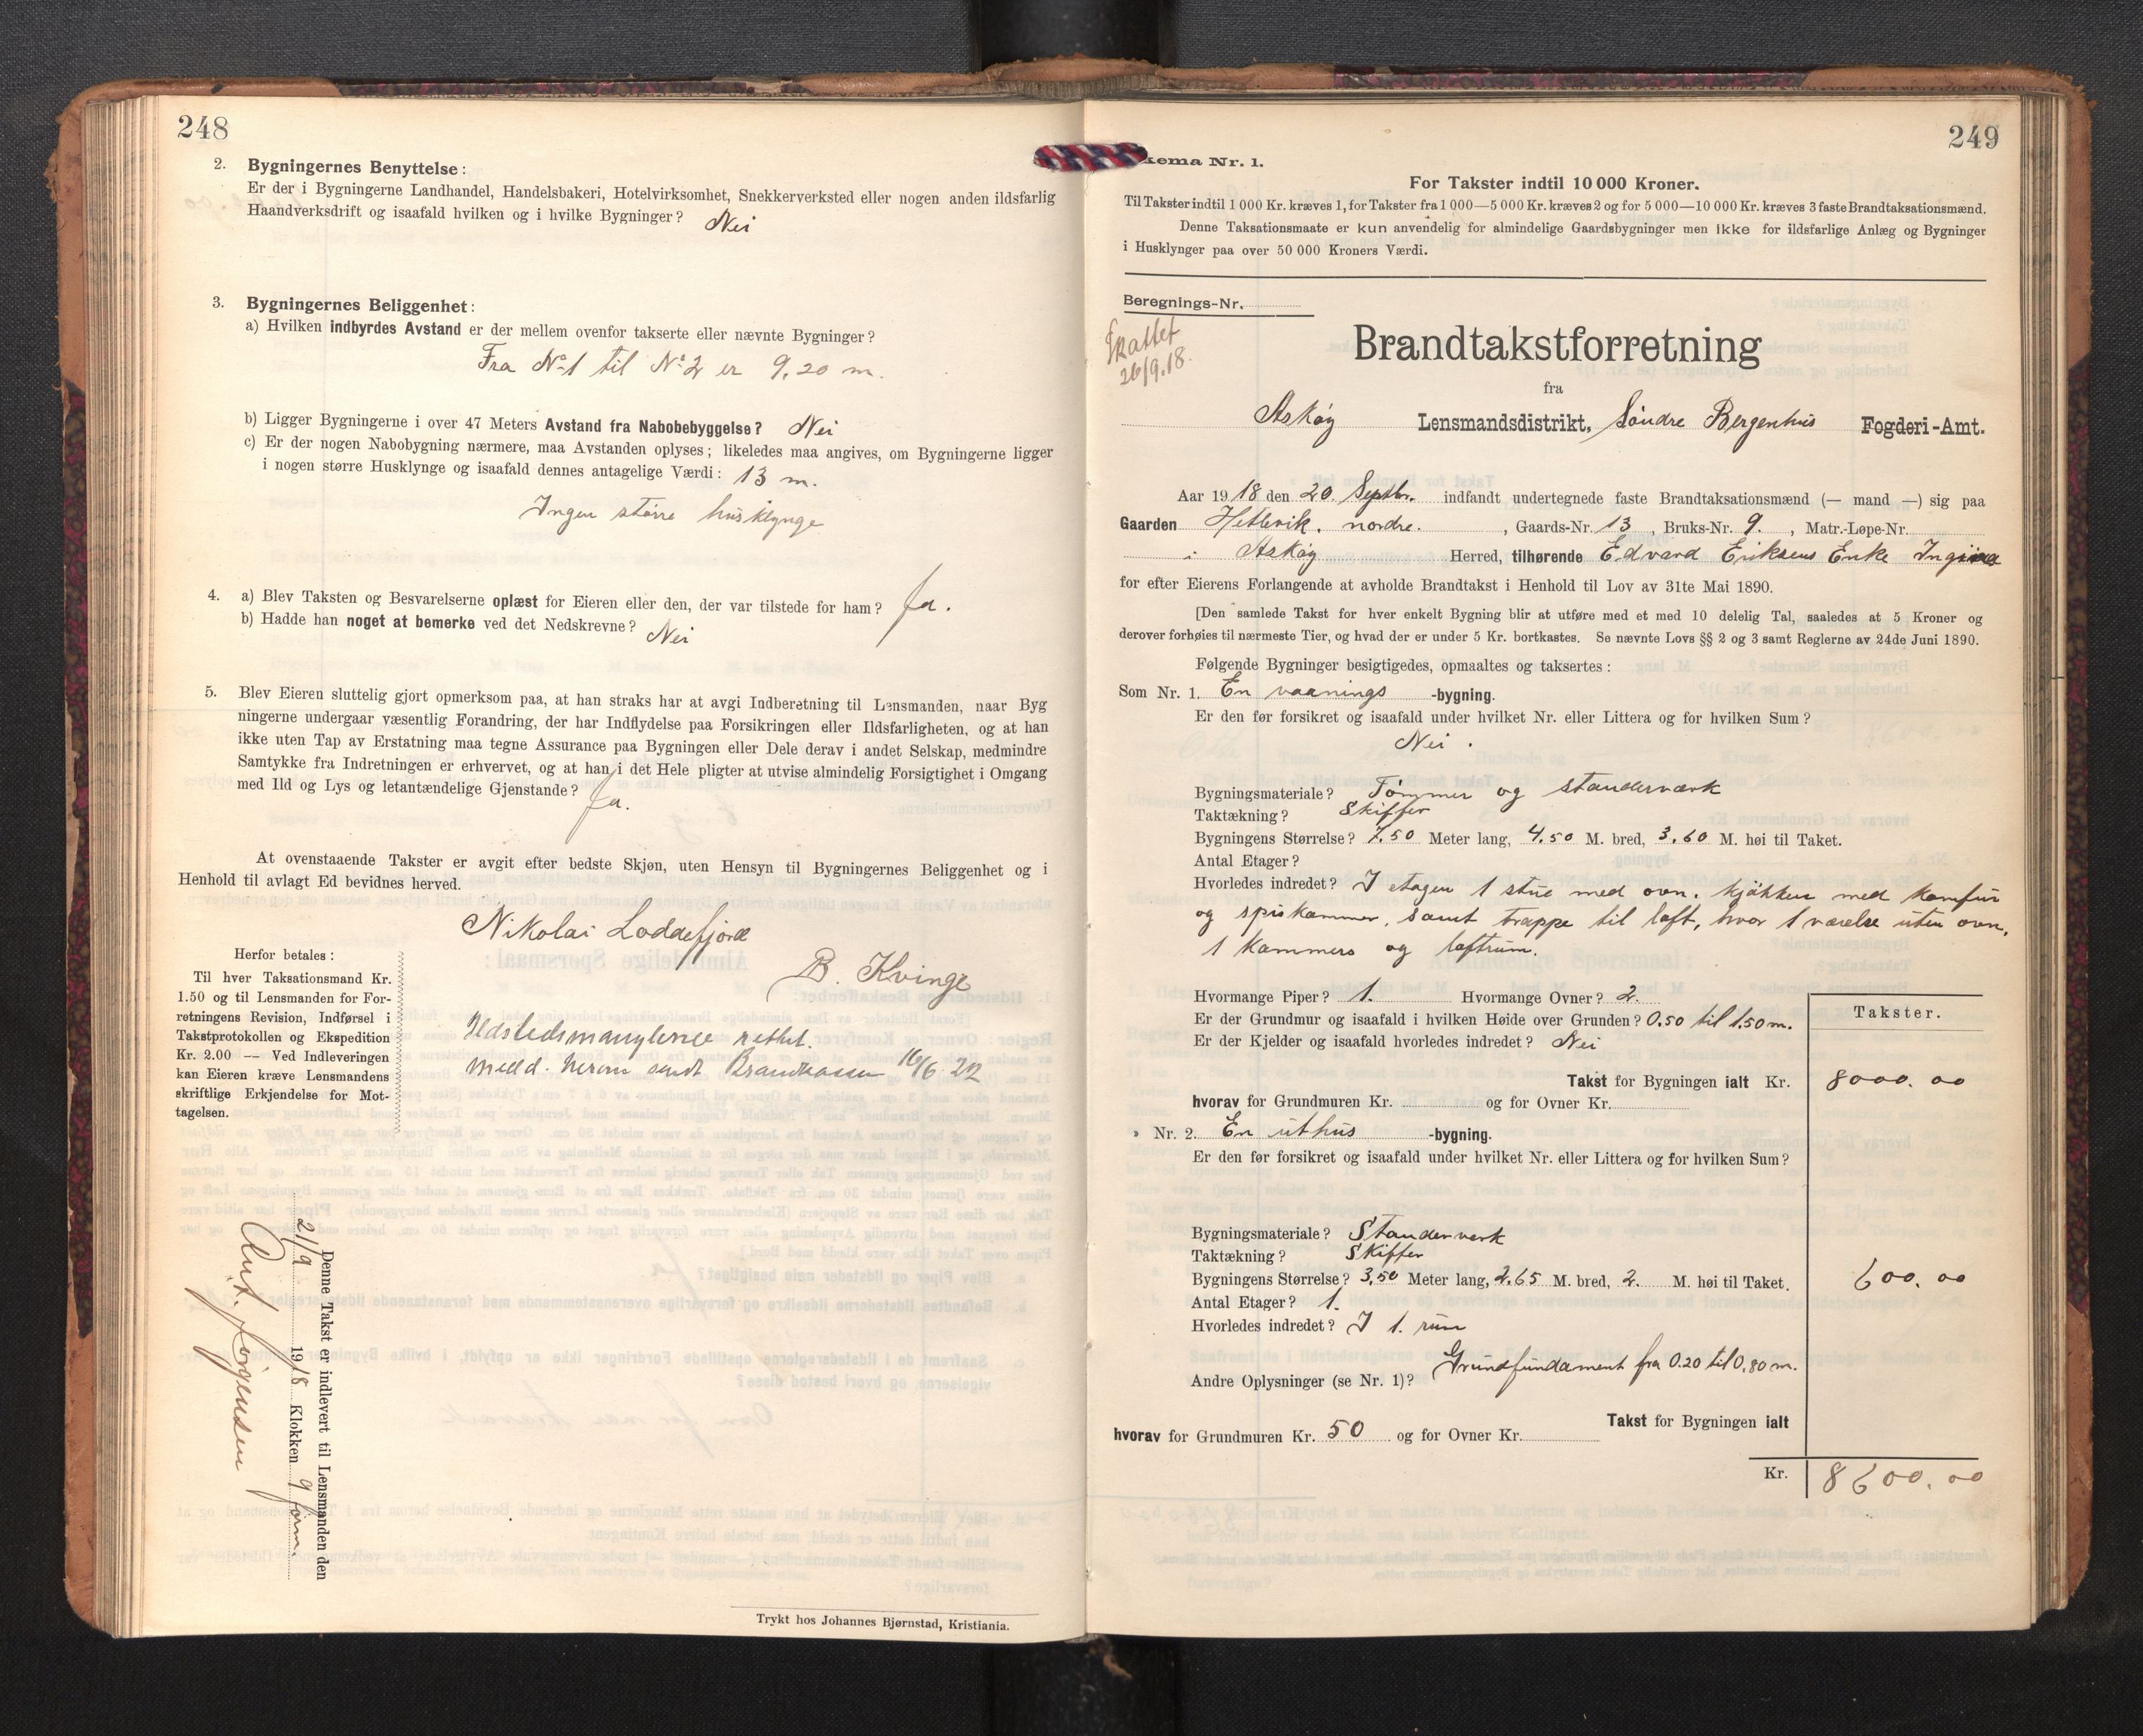 248
2. Bygningernes Benyttelse:
Er der i Bygningerne Landhandel, Handelsbakeri, Hotelvirksomhet, Snekkerverksted eller nogen anden ildsfarlig
Haandverksdrift og isaafald hvilken og i hvilke Bygninger? Nei
3. Bygningernes Beliggenhet:
a) Hvilken indbyrdes Avstand er der mellem ovenfor takserte eller nævnte Bygninger?
Fra No 1 til No 2 er 9,20 m.
b) Ligger Bygningerne i over 47 Meters Avstand fra Nabobebyggelse? Nei
c) Er der nogen Nabobygning nærmere, maa Avstanden oplyses; likeledes maa angives, om Bygningerne ligger
i nogen større Husklynge og isaafald dennes antagelige Værdi: 13 m.
Ingen større husklynge
4. a) Blev Taksten og Besvarelserne oplæst for Eieren eller den, der var tilstede for ham? Ja.
b) Hadde han noget at bemerke ved det Nedskrevne? Nei
5. Blev Eieren sluttelig gjort opmerksom paa, at han straks har at avgi Indberetning til Lensmanden, naar Byg
ningerne undergaar væsentlig Forandring, der har Indflydelse paa Forsikringen eller Ildsfarligheten, og at han
ikke uten Tap av Erstatning maa tegne Assurance paa Bygningen eller Dele derav i andet Selskap, medmindre
Samtykke fra Indretningen er erhvervet, og at han i det Hele pligter at utvise almindelig Forsigtighet i Omgang
med Ild og Lys og letantændelige Gjenstande? Ja.
At ovenstaaende Takster er avgit efter bedste Skjøn, uten Hensyn til Bygningernes Beliggenhet og i
Henhold til avlagt Ed bevidnes herved.
Nikolai Loddefjord
B. Kvinge
Herfor betales:
Til hver Taksationsmand Kr.
1.50 og til Lensmanden for For-
retningens Revision, Indførsel i
Takstprotokollen og Ekspedition
Kr. 2.00 — Ved Indleveringen
kan Eieren kræve Lensmandens
skriftlige Erkjendelse for Mot-
tagelsen.
Ildstedsmanglerne rettet.
Medd. herom sendt Brandkassen 16/6 22
Denne Takst er indlevert til Lensmanden den
21/9 1918 Klokken 9 form.
Ant. Jørgensen
Trykt hos Johannes Bjørnstad, Kristiania.
249
kema Nr. 1.
For Takster indtil 10 000 Kroner.
Til Takster indtil 1 000 Kr. kræves 1, for Takster fra 1 000—5 000 Kr. kræves 2 og for 5 000—10 000 Kr. kræves 3 faste Brandtaksationsmænd.
Denne Taksationsmaate er kun anvendelig for almindelige Gaardsbygninger men ikke for ildsfarlige Anlæg og Bygninger
i Husklynger paa over 50 000 Kroners Værdi.
Beregnings-Nr.
26/9.18.
Brandtakstforretning
fra
Askøy Lensmandsdistrikt, Søndre Bergenhus Fogderi-Amt.
Aar 1918 den 20. Septbr. indfandt undertegnede faste Brandtaksationsmænd (— mand —) sig paa
Gaarden Hetlevik, nordre. , Gaards-Nr. 13 , Bruks-Nr. 9. , Matr.-Løpe-Nr.
i Askøy Herred, tilhørende Edvard Eriksens Enke
for efter Eierens Forlangende at avholde Brandtakst i Henhold til Lov av 31te Mai 1890.
[Den samlede Takst for hver enkelt Bygning blir at utføre med et med 10 delelig Tal, saaledes at 5 Kroner og
derover forhøies til nærmeste Tier, og hvad der er under 5 Kr. bortkastes. Se nævnte Lovs §§ 2 og 3 samt Reglerne av 24de Juni 1890.
Følgende Bygninger besigtigedes, opmaaltes og taksertes:
Som Nr. 1. En vaanings -bygning.
Er den før forsikret og isaafald under hvilket Nr. eller Littera og for hvilken Sum?
Nei.
Bygningsmateriale? Tømmer og standerværk
Taktækning? Skiffer
Bygningens Størrelse? 7.50 Meter lang, 4.50 M. bred, 3.60 M. høi til Taket.
Antal Etager?
Hvorledes indredet? I etagen 1 stue med ovn, kjøkken med komfur
og spiskammer, samt trappe til loft, hvor 1 værelse uten ovn,
1 kammers og loftrum.
Hvormange Piper? 1. Hvormange Ovner? 2.
Er der Grundmur og isaafald i hvilken Høide over Grunden? 0.50 til 1.50 m.
Er der Kjelder og isaafald hvorledes indredet? Nei
Takster.
Takst for Bygningen ialt Kr. 8000.00
hvorav for Grundmuren Kr. og for Ovner Kr.
» Nr. 2. En uthus -bygning.
Er den før forsikret og isaafald under hvilket Nr. eller Littera og for hvilken Sum?
Bygningsmateriale? Standerverk
Taktækning? Skiffer
Bygningens Størrelse? 3,50 Meter lang, 2,65 M. bred, 2. M. høi til Taket. 600.00
Antal Etager? 1.
Hvorledes indredet? I 1. rum
Andre Oplysninger (se Nr. 1)? Grundfundament fra 0.20 til 0.80 m.
Takst for Bygningen ialt
hvorav for Grundmuren Kr. 50 og for Ovner Kr.
Kr. 8600.00